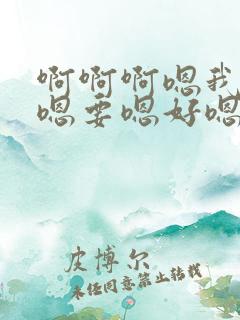 啊啊啊嗯我
嗯要嗯好嗯
皮博尔
未经同意禁止转载